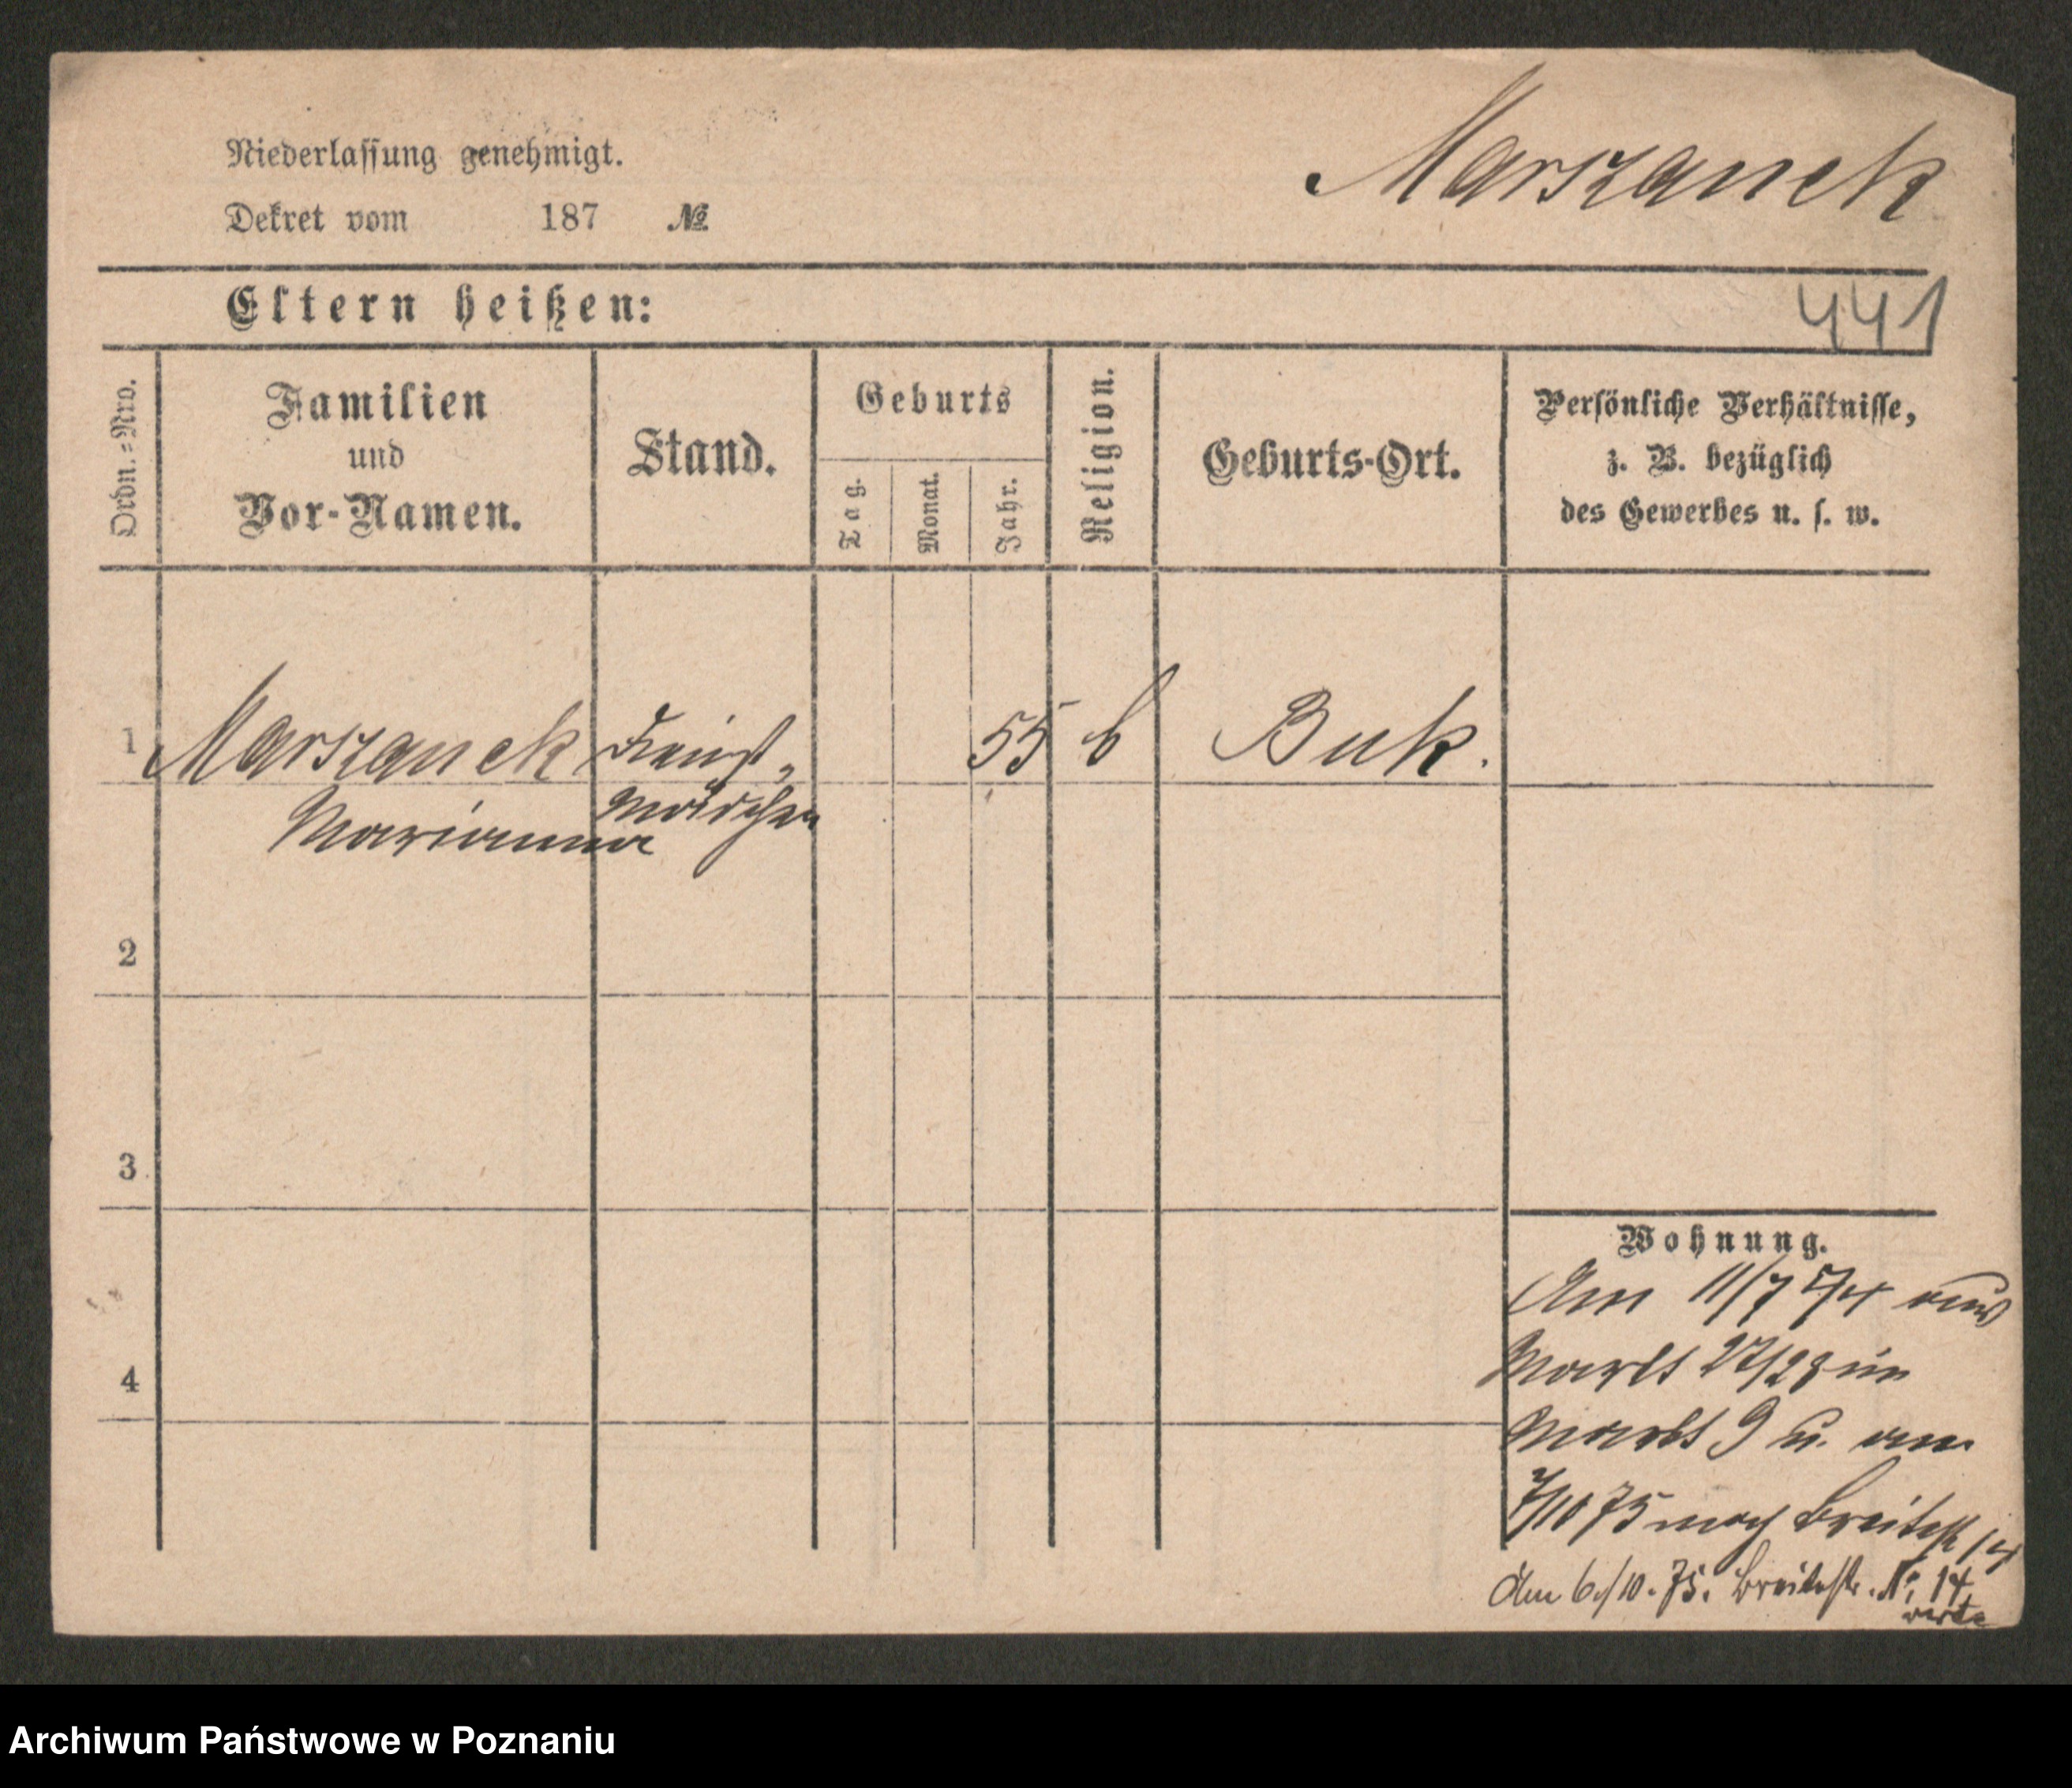 Marszanek
Niederlassung genehmigt.
Dekret vom 187 №
Eltern heißen:
441
Ordn.=Nro.
Familien
und
Vor-Namen.
Stand.
Geburts
Tag.
Monat.
Jahr.
Religion.
Geburts-Ort.
Persönliche Verhältnisse,
z. B. bezüglich
des Gewerbes u. s. w.
1 Marszanek Dienst- 55 k Buk.
Marianna Mädchen
2
3
4
Wohnung.
Am 11/7 74 aus
Markt 27/28 in
Markt 9 u. am
7/10 75 nach Breitestr 14
Am 6./10. 75. Breitestr. №. 14
verte
Archiwum Państwowe w Poznaniu